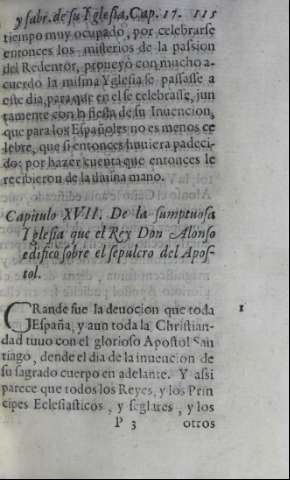 y fabr. de su Yglesia, Cap. 17. 115
tiempo muy ocupado, por celebrarse
entonces los misterios de la passion
del Redentor, proueyò con mucho a-
cuerdo la misma Yglesia se passasse a
este dia, para que en el se celebrasse, jun
tamente con la fiesta de su Inuencion,
que para los Españoles no es menos ce
lebre, que si entonces huuiera padeci-
do: por hazer cuenta que entonces le
recibieron de la diuina mano.
Capitulo XVII. De la sumptuosa
Yglesia que el Rey Don Alonso
edificò sobre el sepulcro del Apos-
tol.
GRande fue la deuocion que toda
España, y aun toda la Christian-
dad tuuo con el glorioso Apostol San
tiago, dende el dia de la inuencion de
su sagrado cuerpo en adelante. Y assi
parece que todos los Reyes, y los Prin
cipes Eclesiasticos, y seglares, y los
P 3 otros
1